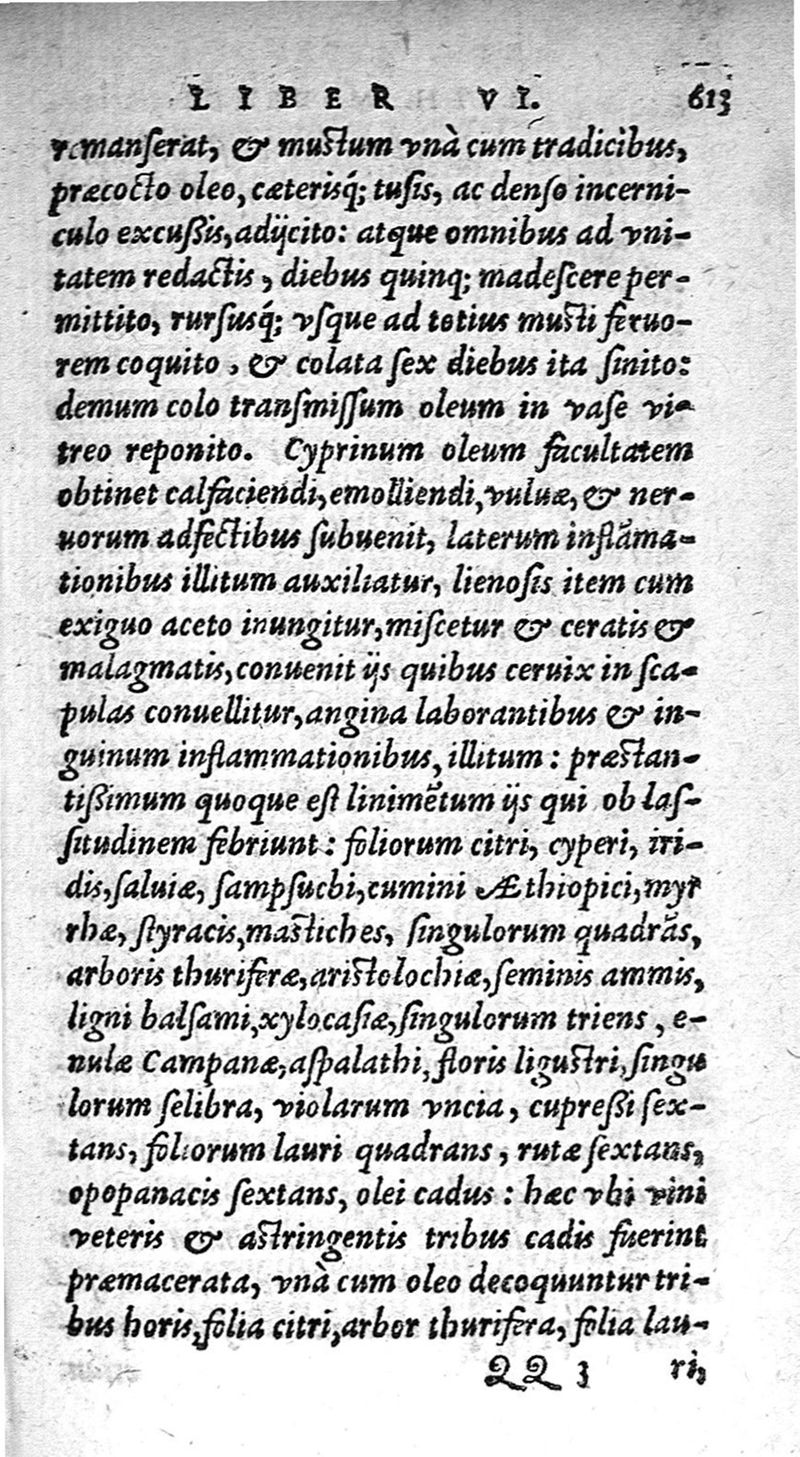 LIBER VI. 613
remanserat, & mustum vnà cum tradicibus,
præcocto oleo, cæterisq́; tusis, ac denso incerni-
culo excußis, adijcito: atque omnibus ad vni-
tatem redactis, diebus quinq; madescere per-
mittito, rursusq́; vsque ad totius musti feruo-
rem coquito, & colata sex diebus ita sinito:
demum colo transmissum oleum in vase vi-
treo reponito. Cyprinum oleum facultatem
obtinet calfaciendi, emolliendi, vuluæ, & ner-
uorum adfectibus subuenit, laterum inflãma-
tionibus illitum auxiliatur, lienosis item cum
exiguo aceto inungitur, miscetur & ceratis &
malagmatis, conuenit ijs quibus ceruix in sca-
pulas conuellitur, angina laborantibus & in-
guinum inflammationibus, illitum: præstan-
tißimum quoque est linimẽtum ijs qui ob las-
situdinem febriunt: foliorum citri, cyperi, iri-
dis, saluiæ, sampsuchi, cumini Æthiopici, myr
rhæ, styracis, mastiches, singulorum quadrãs,
arboris thuriferæ, aristolochiæ, seminis ammis,
ligni balsami, xylocasiæ, singulorum triens, e-
nulæ Campanæ, aspalathi, floris ligustri, singu
lorum selibra, violarum vncia, cupreßi sex-
tans, foliorum lauri quadrans, rutæ sextans,
opopanacis sextans, olei cadus: hæc vbi vini
veteris & astringentis tribus cadis fuerint
præmacerata, vnà cum oleo decoquuntur tri-
bus horis, folia citri, arbor thurifera, folia lau-
QQ 3 ri,